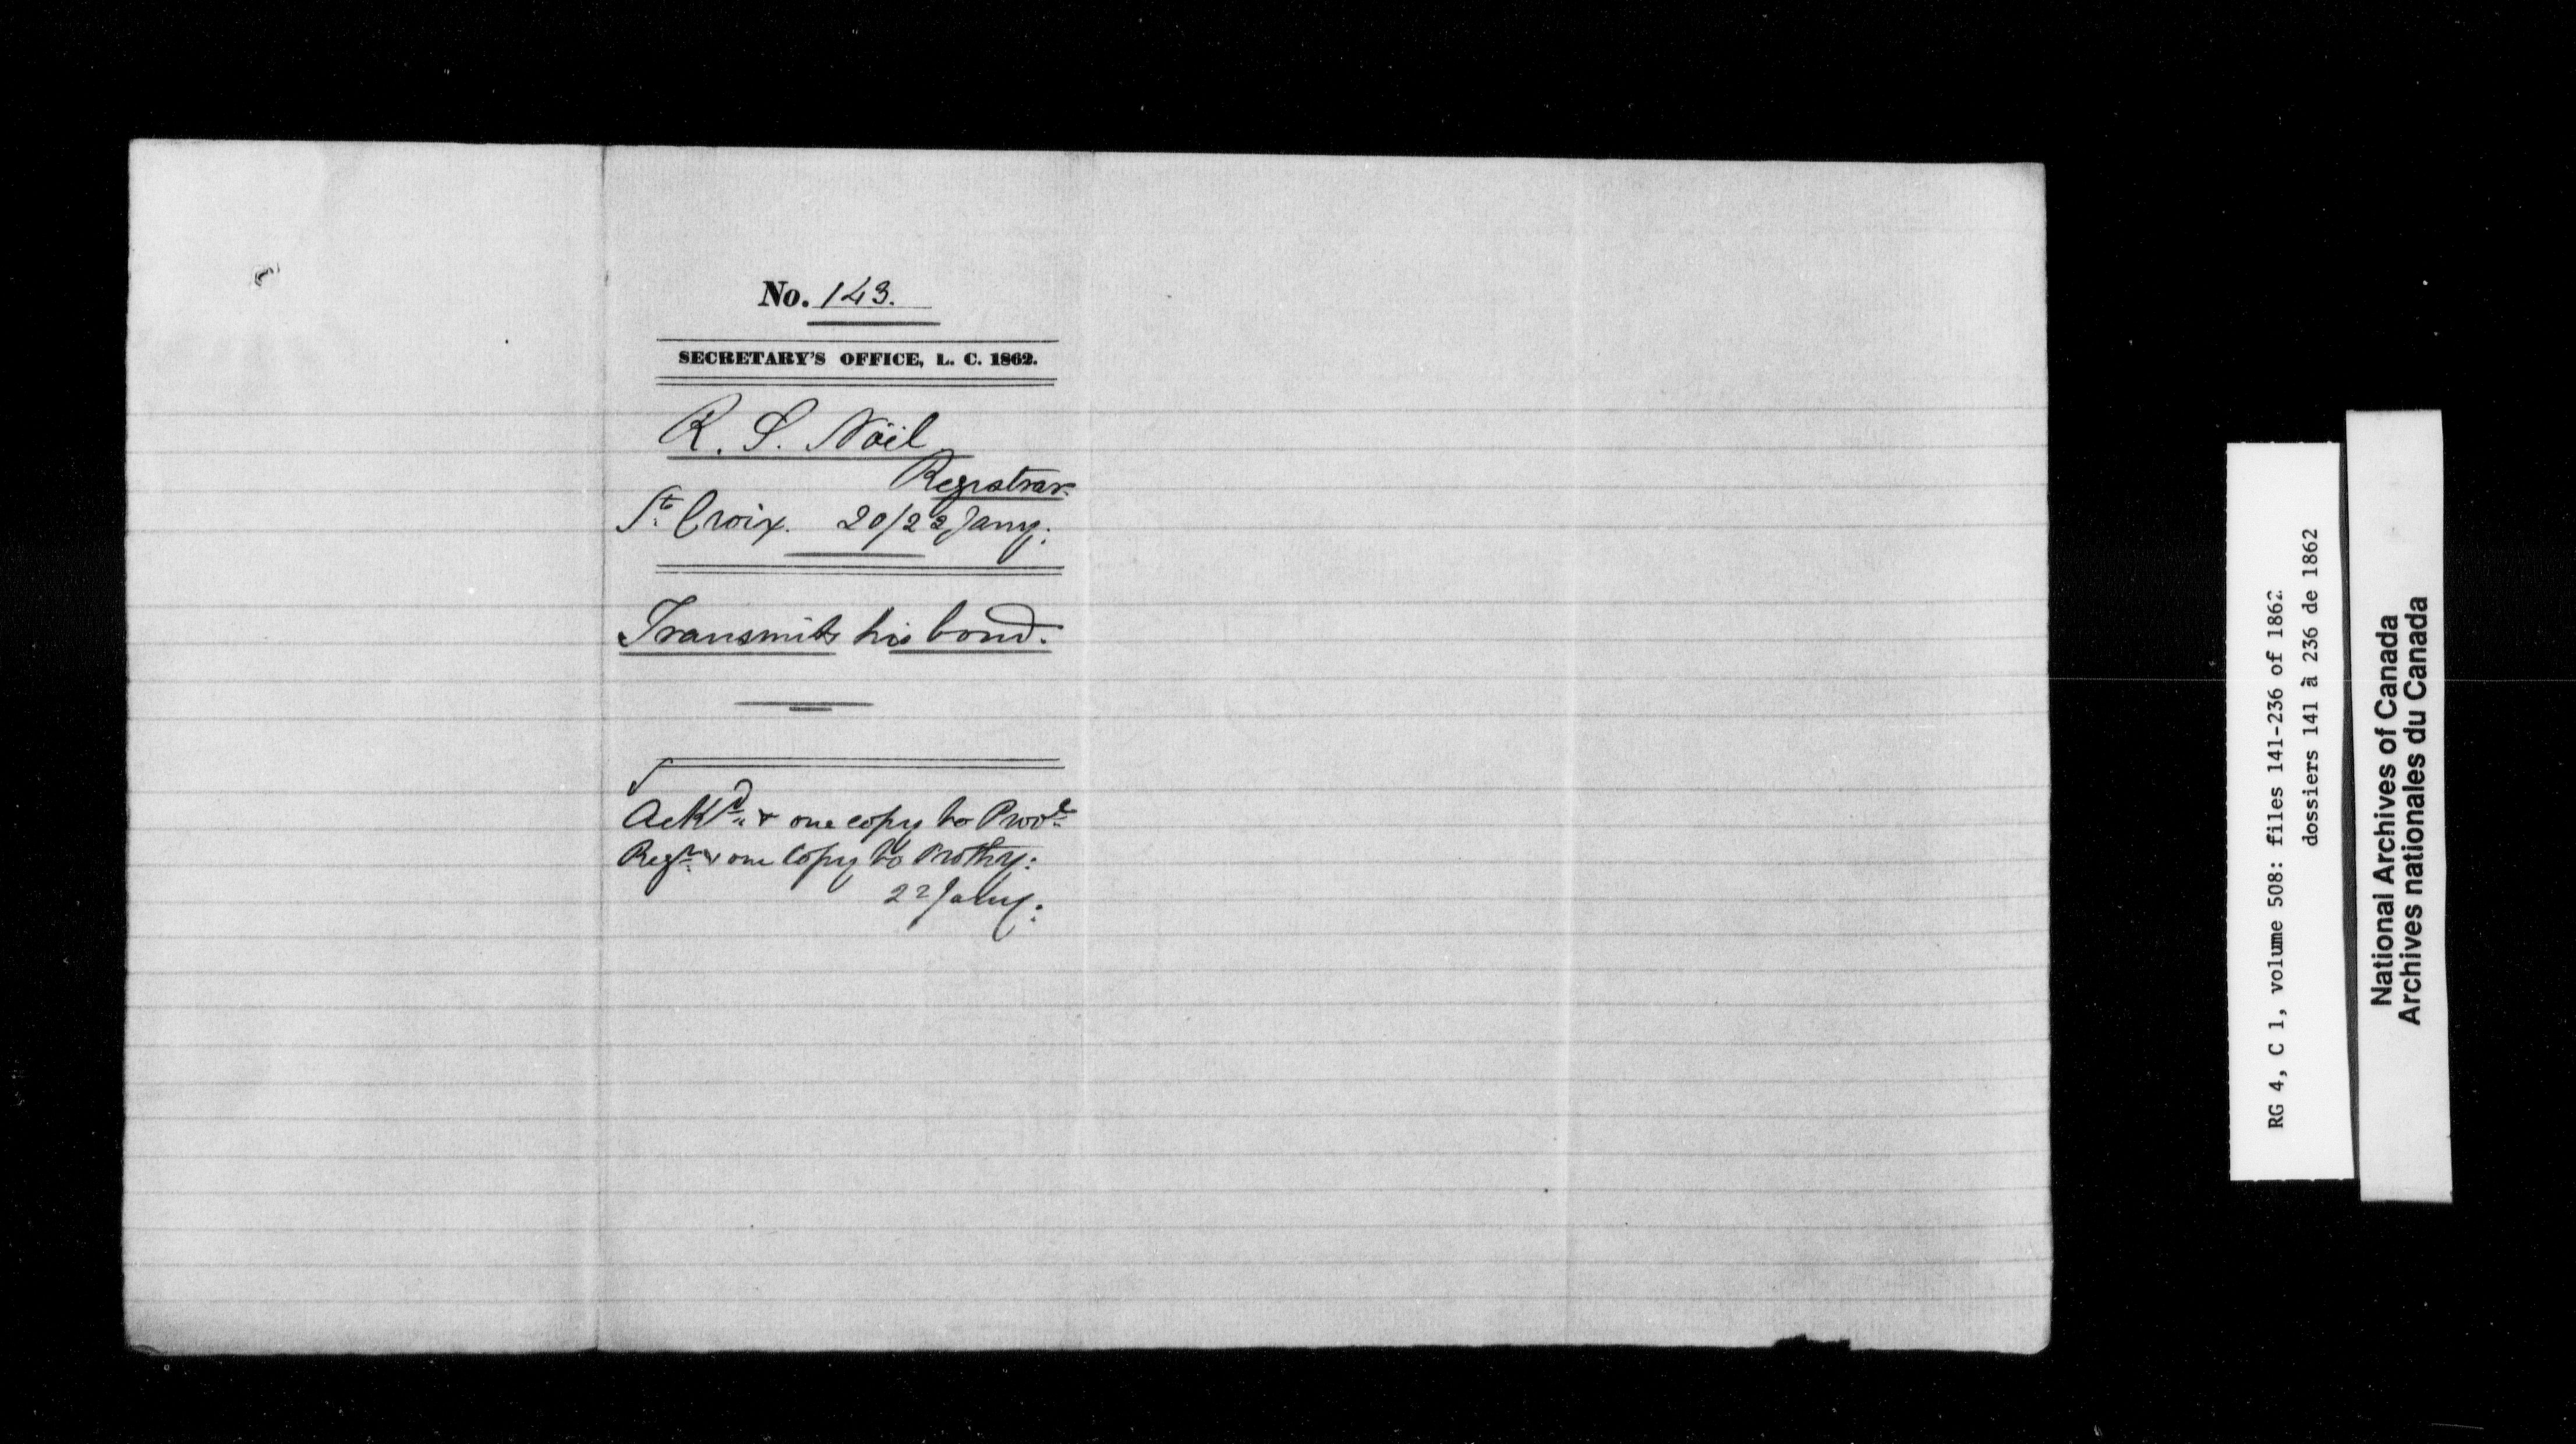 No. 143.
SECRETARY'S OFFICE, L. C. 1862.
R. S. Nöel
Registrar
St. Croix. 20/22 Jany:
Transmits his bond.
Ackd. & one copy to Provl.
Regr. & one Copy to Prothy:
22 Jany:
RG 4, C 1, volume 508: files 141-236 of 1862
dossiers 141 à 236 de 1862
National Archives of Canada
Archives nationales du Canada